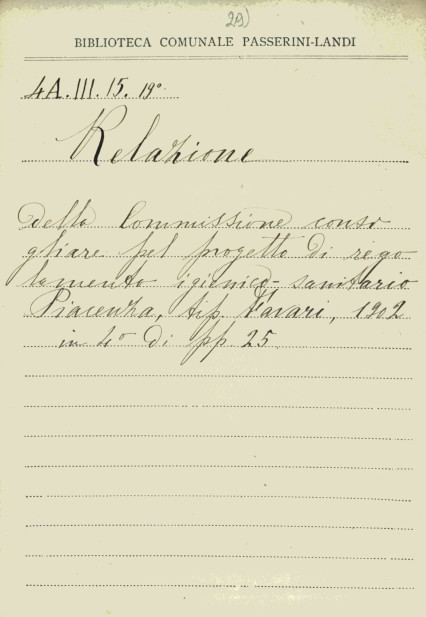 29)
BIBLIOTECA COMUNALE PASSERINI-LANDI
4A.III.15. 19°
Relazione
della Commissione consi
gliare pel progetto di rego
lamento igienico-sanitario
Piacenza, tip. Favari, 1902
in 4° di pp 25.